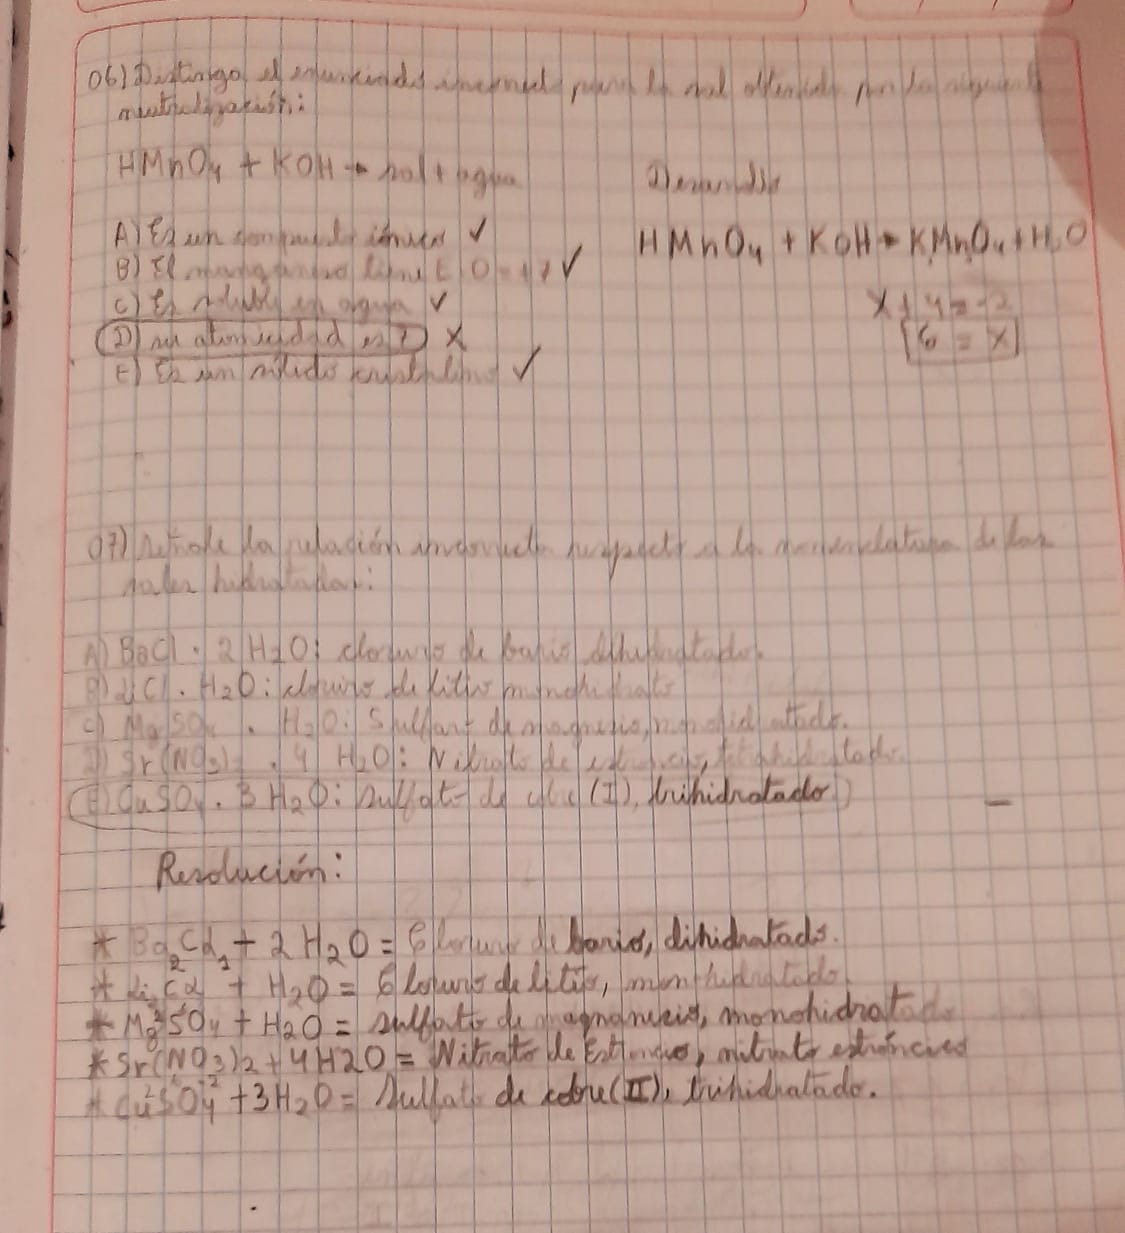 06) Distingo el enunciado incorrecto para la sal obtenida por la siguiente
neutralización:
HMnO4 + KOH → sal + agua
Desarrollo
A) Es un compuesto iónico ✓
HMnO4 + KOH → KMnO4 + H2O
B) El manganeso tiene E.O = +7 ✓
C) Es soluble en agua ✓
X + 4 = -2
D) su atomicidad es 7 X
6 = X
E) Es un sólido cristalino ✓
07) Señale la relación incorrecta respecto a la nomenclatura de las
sales hidratadas:
A) BaCl · 2 H2O: cloruro de bario dihidratado.
B) LiCl · H2O: cloruro de litio monohidrato
C) MgSO4 · H2O: Sulfato de magnesio, monohidratado.
D) Sr(NO3)2 · 4 H2O: Nitrato de estroncio, tetrahidratado.
E) CuSO4 · 3 H2O: sulfato de cobre (I), trihidratado
Resolución:
* Ba2Cl1 + 2 H2O = Cloruro de bario, dihidratado.
* + H2O = Cloruro de litio, monohidratado
* + H2O = sulfato de monohidratado
* Sr(NO3)2 + 4H2O = Nitrato de
* + 3H2O = Sulfato de cobre (II), trihidratado.